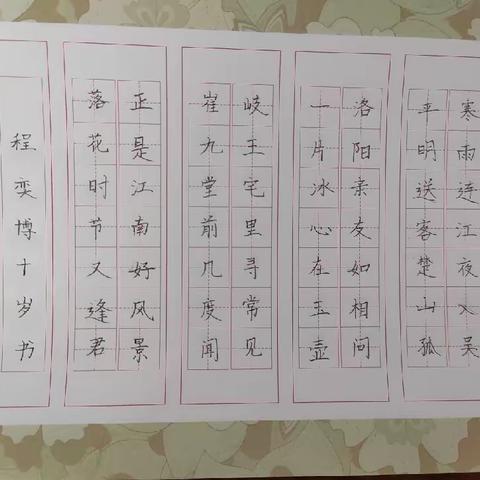 寒雨连江夜入吴
平明送客楚山孤
洛阳亲友如相问
一片冰心在玉壶
岐王宅里寻常见
崔九堂前几度闻
正是江南好风景
落花时节又逢君
程奕博十岁书